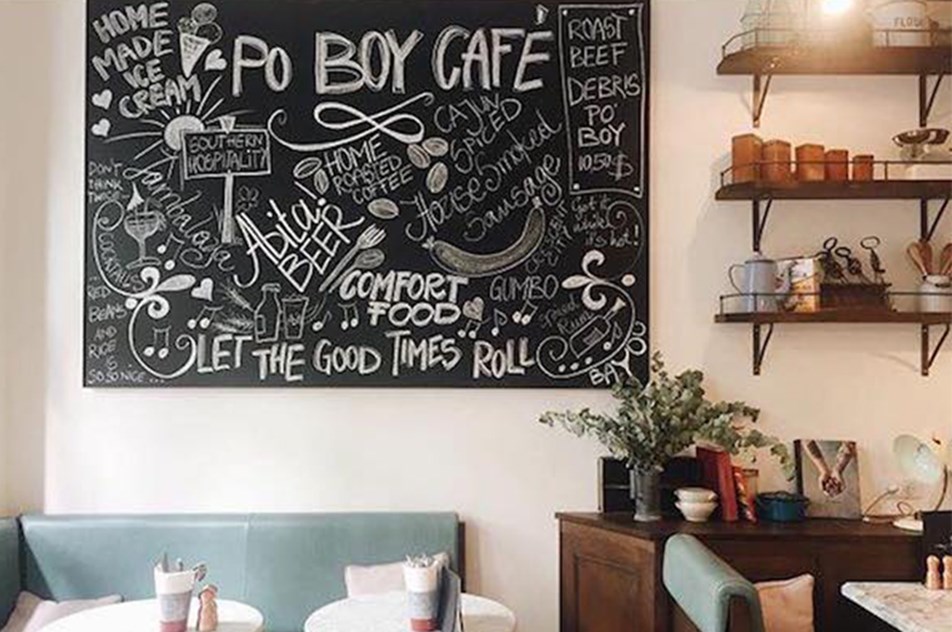 HOME
MADE
ICE
CREAM
PO BOY CAFÉ
ROAST
BEEF
DEBRIS
PO'
BOY
10,50$
SOUTHERN
HOSPITALITY
HOME
ROASTED
COFFEE
CAJUN
SPICED
House Smoked
Sausage
DON'T
THINK
TWICE
Jambalaya
COCKTAILS
Abita
BEER
it's hot!
COMFORT
FOOD
GUMBO
RED
BEANS
AND
RICE
IS
SO SO NICE...
LET THE GOOD TIMES ROLL
BAYOU
FLOUR